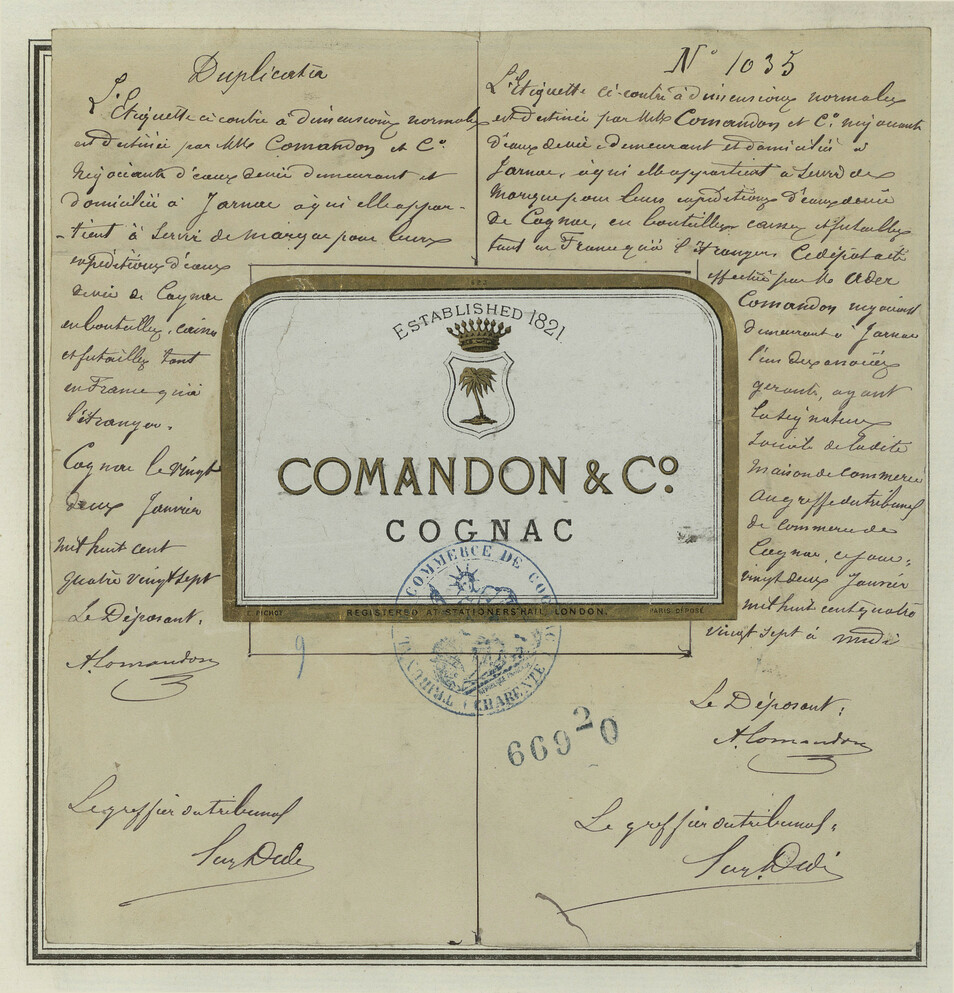 Duplicata
L'Etiquette ci contre à dimensions normales
est destinée par MM. Comandon et Co.
négociants d'eaux de vie demeurant et
domiciliés à Jarnac à qui elle appar-
-tient à servir de marque pour leurs
expéditions d'eaux
de vie de Cognac
en bouteilles, caisses
et futailles tant
en France qu'à
l'étranger.
Cognac le vingt
deux Janvier
mil huit cent
quatre vingt sept
Le Déposant,
A. Comandon
Le greffier du tribunal
No 1035
L'Etiquette ci-contre à dimensions normales
est destinée par MM. Comandon et Co. négociants
d'eaux de vie demeurant et domiciliés à
Jarnac, à qui elle appartient à servir de
marque pour leurs expéditions d'eaux de vie
de Cognac, en bouteilles, caisses et futailles
tant en France qu'à l'étranger. Ce dépôt a été
effectué par M. Ader
Comandon négociant
demeurant à Jarnac
l'un des associés
gérants, ayant
la signature
sociale de la dite
maison de commerce
au greffe du tribunal
de commerce de
Cognac, ce jour,
vingt deux Janvier
mil huit cent quatre
vingt sept à midi
Le Déposant:
A. Comandon
Le greffier du tribunal,
ESTABLISHED 1821
COMANDON & Co.
COGNAC
E. PICHOT
REGISTERED AT STATIONERS' HALL, LONDON.
PARIS. DÉPOSÉ
TRIBUNAL COMMERCE DE COGNAC
CHARENTE
9
66920